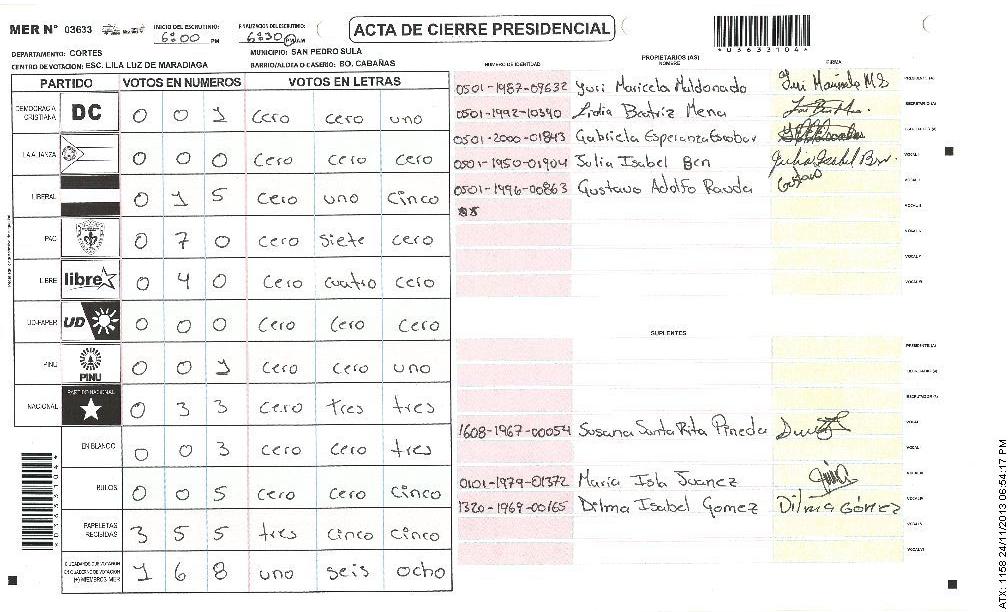 MER N° 03633
INICIO DEL ESCRUTINIO: 6:00 PM
FINALIZACION DEL ESCRUTINIO: 6:30 PM AM
ACTA DE CIERRE PRESIDENCIAL
03633104
DEPARTAMENTO: CORTES
MUNICIPIO: SAN PEDRO SULA
CENTRO DE VOTACION: ESC. LILA LUZ DE MARADIAGA
BARRIO/ALDEA O CASERIO: BO. CABAÑAS
PARTIDO VOTOS EN NUMEROS VOTOS EN LETRAS
DEMOCRACIA CRISTIANA DC 0 0 1 cero cero uno
LA ALIANZA 0 0 0 cero cero cero
LIBERAL 0 1 5 cero uno cinco
PAC 0 7 0 cero siete cero
LIBRE libre 0 4 0 cero cuatro cero
UD-FAPER UD 0 0 0 cero cero cero
PINU PINU 0 0 1 cero cero uno
NACIONAL PARTIDO NACIONAL 0 3 3 cero tres tres
EN BLANCO 0 0 3 cero cero tres
NULOS 0 0 5 cero cero cinco
PAPELETAS RECIBIDAS 3 5 5 tres cinco cinco
CIUDADANOS QUE VOTARON EN CUADERNO DE VOTACION (+) MIEMBROS MER 1 6 8 uno seis ocho
PROPIETARIOS (AS)
NUMERO DE IDENTIDAD NOMBRE FIRMA
0501-1987-09632 Yuri Maricela Maldonado PRESIDENTE (A)
0501-1992-10340 Lidia Beatriz Mena SECRETARIO (A)
0501-2000-01843 Gabriela Esperanza Escobar ESCRUTADOR (A)
0501-1950-01904 Julia Isabel Julia Isabel VOCAL I
0501-1996-00863 Gustavo Adolfo Gustavo VOCAL II
VOCAL III
VOCAL IV
VOCAL V
VOCAL VI
SUPLENTES
PRESIDENTE (A)
SECRETARIO (A)
ESCRUTADOR (A)
1608-1967-00054 Susana Santa Rita Pineda VOCAL I
VOCAL II
0101-1979-01372 Maria Isla Juanez VOCAL III
1320-1969-00165 Dilma Isabel Gomez Dilma Gómez VOCAL IV
VOCAL V
VOCAL VI
ATX: 1158 24/11/2013 06:54:17 PM